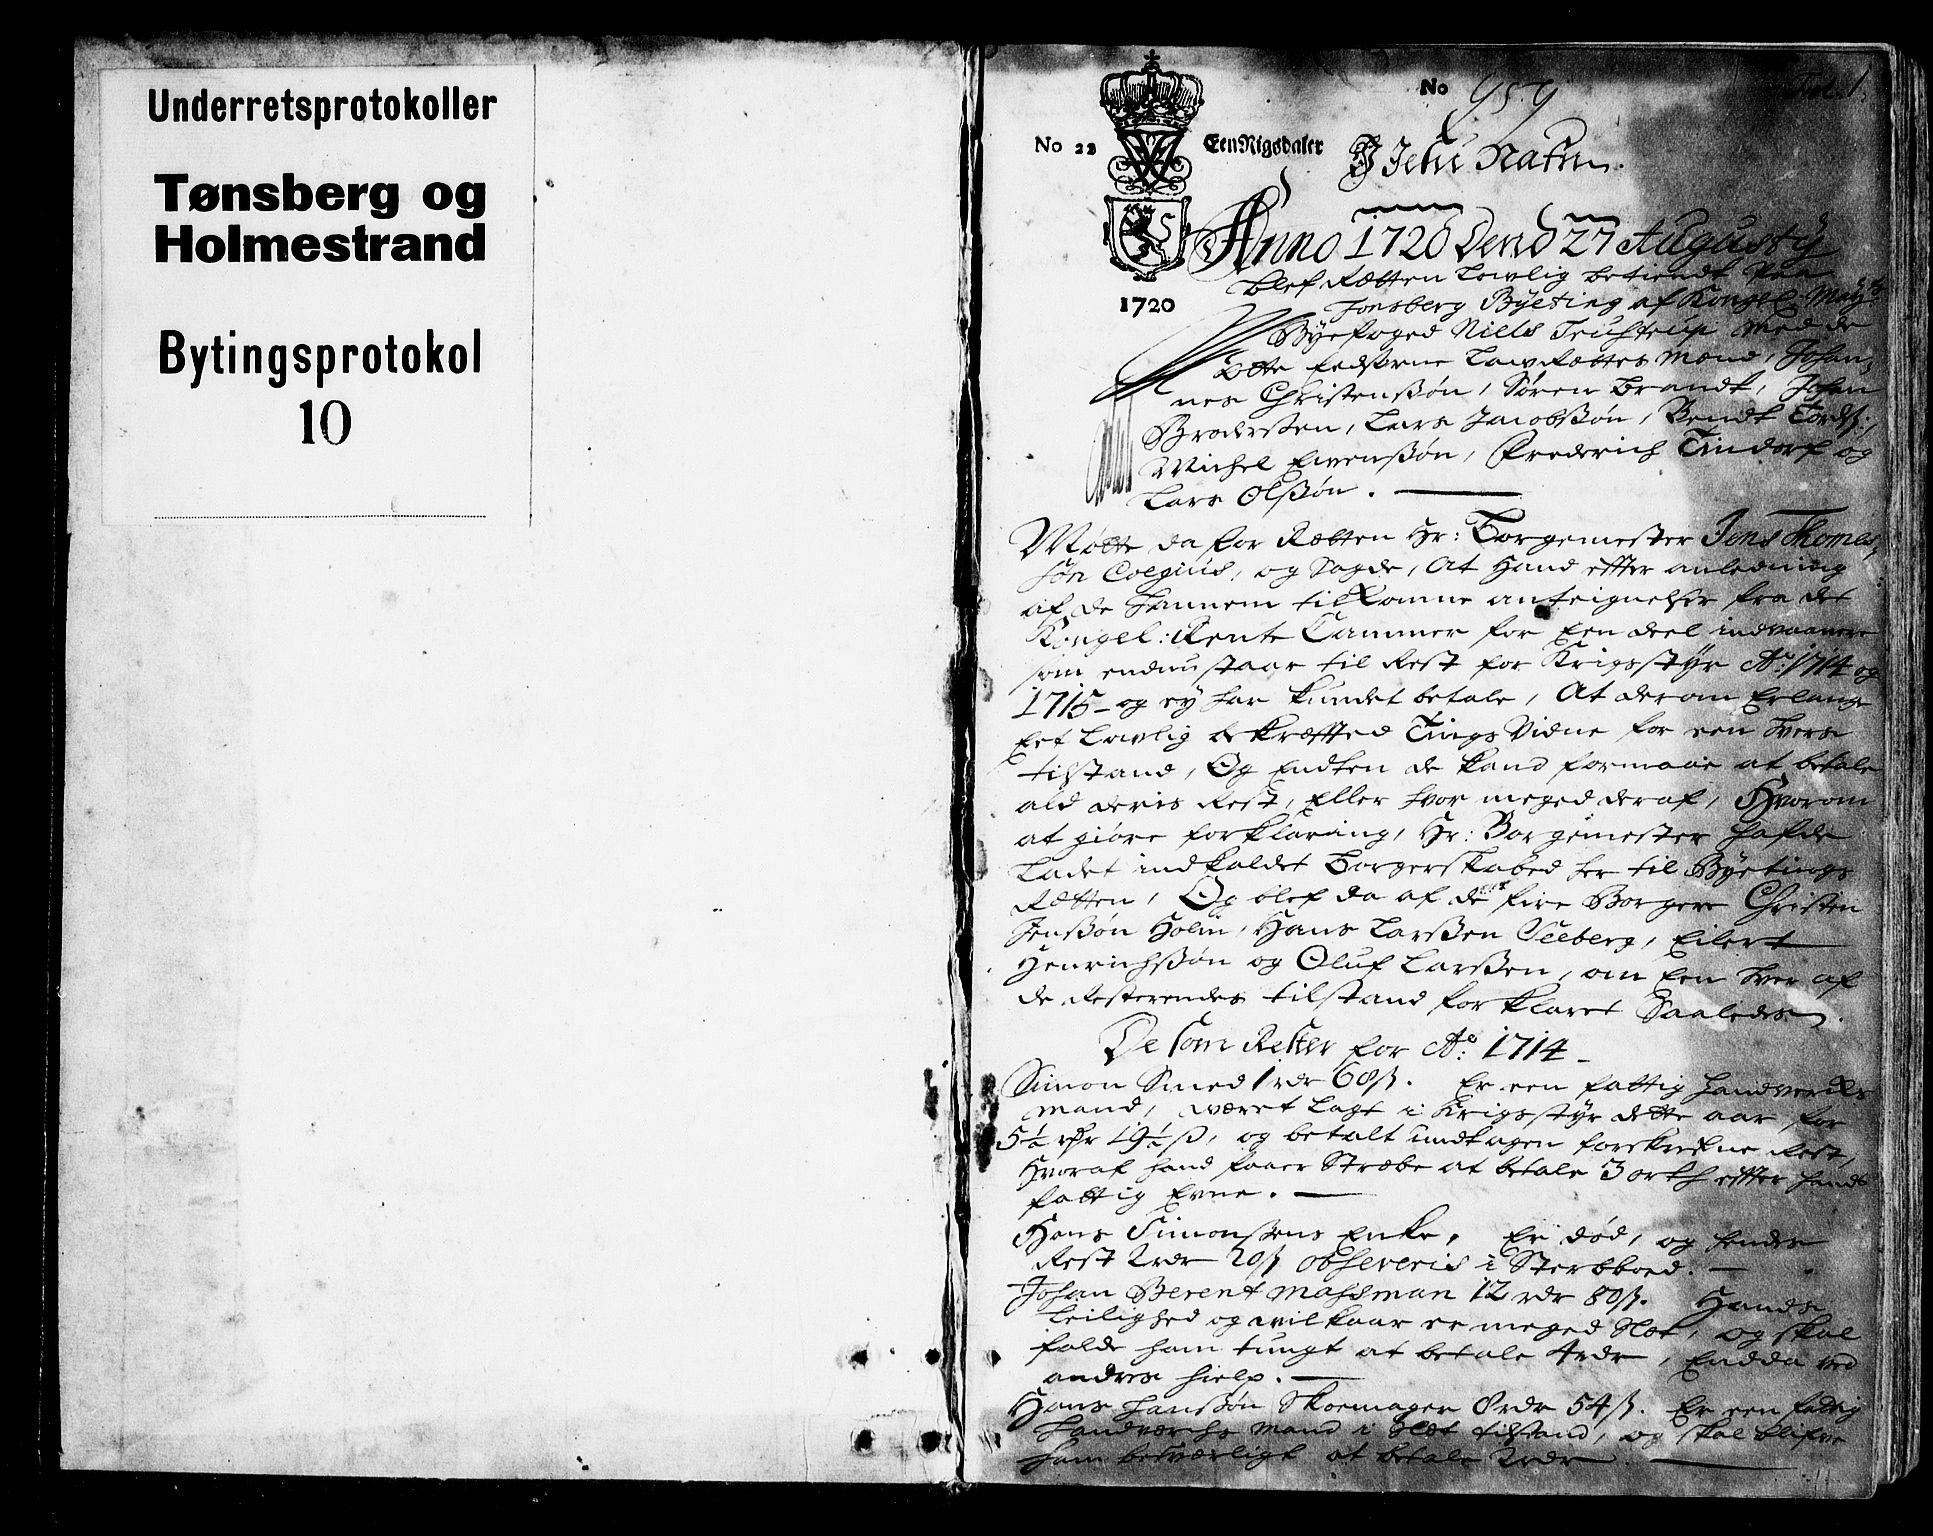 Underretsprotokoller
Tønsberg og
Holmestrand
Bytingsprotokol
10
Fol: 1.
No 959
No 22 Een Rigsdaler
J Jesu Nafn.
1720
Anno 1720 Dend 27 Augusty
blef Retten Lovlig betiendt paa
Tonsberg Byeting af Kongel. Mayts
Byefoged Niels Teustrup med de
Otte Eedsorne LavRettes Mænd, Johan-
nes Christensøn, Søren Brandt, Johan
Brodersen, Lars Jacobsøn, Bendt Tords:,
Michel Evensøn, Frederich Tindorf og
Lars Olsøn.
Møtte da for Retten Hr: Borgemester Jens Thomes-
søn Colgius, og Sagde, At Hand effter anledning
af de hannem tilkomne anteignelser fra det
Kongel: Rente Cammer for Een deel indvaanere
som endnu staar til Rest for Krigsstyr Ao: 1714 og
1715 og ey har kundet betale, At derom Erlange
Eet Lovlig bekræffted TingsVidne for een hvers
tilstand, Og Endten de kand formaae at betale
ald deris Rest, Eller hvor meged deraf, Hvorom
at giøre forklaring, Hr: Borgemester hafde
Ladet indkaldet Borgerskabed her til Byetings
Retten, Og blef da af de fire Borgere Christen
Jensøn Holm, Hans Larsen Seeberg, Eilert
Henrichsøn og Oluf Larsen, om Een hver af
de Resterendes tilstand forklaret Saaledes.
De som Rester for Ao: 1714
Simon Smed 1 rdr 68 ß. Er een fattig Handverks
mand, været Lagt i Krigsstyr dette aar for
5½ rdr 19½ ß, og betalt undtagen forskrefne Rest,
Hvoraf hand faaer Stræbe at betale 3 ort effter hands
fattig Evne.
Hans Simonsens Enke. Er død, og hendes
Rest 2 rdr 20 ß observeris i Sterbboed.
Johan Berent Mahsman 12 rdr 80 ß. Hands
Leilighed og vilkaar er meged Slet, og skal
falde ham tungt at betale 4 rdr, Endda ved
andres hielp.
Hans Hansøn Skoemager 8 rdr 54 ß. Er een fattig
Handværchs mand i Slet tilstand, og skal blifve
ham besværligt at betale 2 rdr.